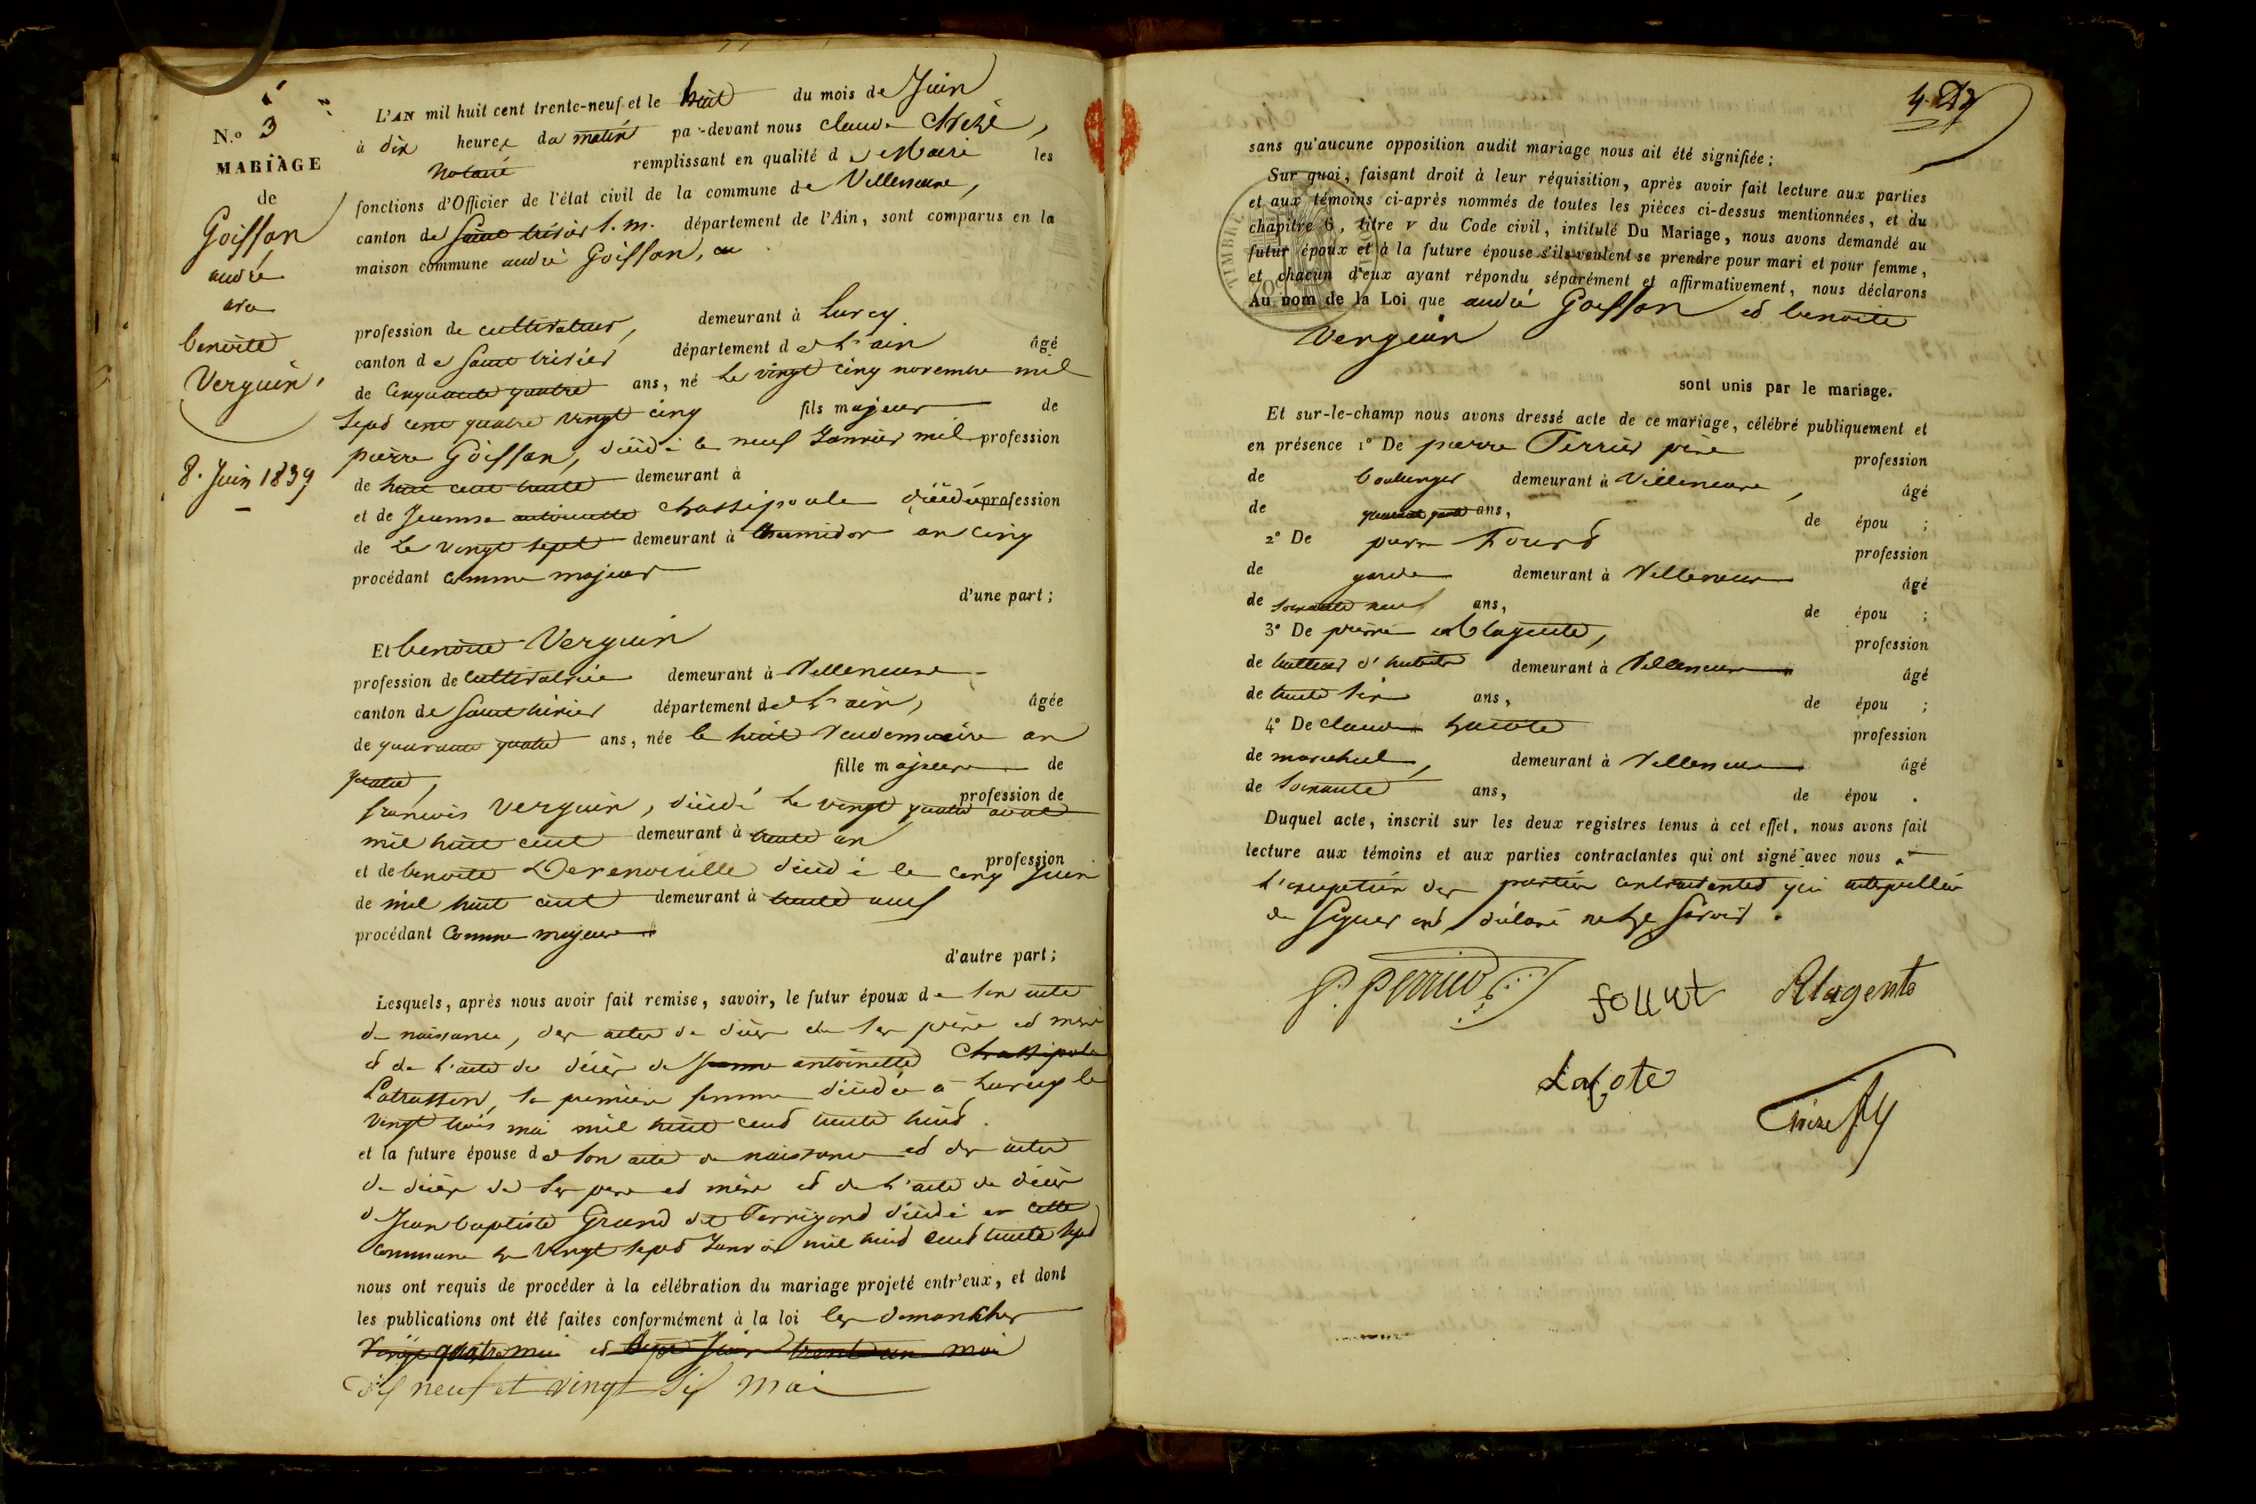 N.º 3
MARIAGE
de
Goiffon
andré
Benoite
Verguin
8. Juin 1839
L'AN mil huit cent trente-neuf et le huit du mois de Juin
à dix heures du matin par-devant nous claude
Notaire remplissant en qualité de Maire les
fonctions d'Officier de l'état civil de la commune de Villeneuve,
canton de Saint trivier s. m. département de l'Ain, sont comparus en la
maison commune andré Goiffon,
profession de cultivateur, demeurant à Lurcy
canton de Saint trivier département de l'ain âgé
de Cinquante quatre ans, né le vingt cinq novembre mil
sept cent quatre vingt cinq fils majeur de
pierre Goiffon, décédé le neuf Janvier mil profession
de huit cent trente demeurant à
et de Jeanne antoinette chassipoule décédée profession
de le vingt sept demeurant à thermidor an cinq
procédant comme majeur
d'une part;
Et benoite Verguin
profession de cultivatrice demeurant à Villeneuve
canton de Saint trivier département de l'ain, âgée
de quarante quatre ans, née le huit Vendemiaire an
quatre, fille majeure de
francois Verguin, décédé le vingt quatre avril profession de
mil huit cent demeurant à trente un
et de benoite Derenouille décédé le cinq Juin profession
de mil huit cent demeurant à trente neuf
procédant Comme majeure
d'autre part;
Lesquels, après nous avoir fait remise, savoir, le futur époux de son acte
de naissance, des actes de décès de ses père et mère
et de l'acte de décès de Jeanne antoinette Chassipole
Latrasson, sa première femme décédée à Lurcy le
vingt trois mai mil huit cent trente huit.
et la future épouse de son acte de naissance et des actes
de décès de ses pere et mère et de l'acte de décès
de Jean baptiste Grand dit Perrigond décédé en cette
commune le vingt sept Janvier mil huit cent trente sept
nous ont requis de procéder à la célébration du mariage projeté entr'eux, et dont
les publications ont été faites conformément à la loi les dimanches
vingt quatre mai et trente un mai
dix neuf et vingt six mai
sans qu'aucune opposition audit mariage nous ait été signifiée;
Sur quoi, faisant droit à leur réquisition, après avoir fait lecture aux parties
et aux témoins ci-après nommés de toutes les pièces ci-dessus mentionnées, et du
chapitre 6, titre v du Code civil, intitulé Du Mariage, nous avons demandé au
futur époux et à la future épouse s'ils veulent se prendre pour mari et pour femme,
et chacun d'eux ayant répondu séparément et affirmativement, nous déclarons
Au nom de la Loi que andré Goiffon et benoite
Verguin
sont unis par le mariage.
Et sur-le-champ nous avons dressé acte de ce mariage, célébré publiquement et
en présence 1º De pierre Perrier père profession
de boulanger demeurant à Villeneuve, âgé
de ans, de épou ;
2º De pierre profession
de garde demeurant à Villeneuve âgé
de soixante neuf ans, de épou ;
3º De pierre Alagente, profession
de demeurant à Villeneuve âgé
de trente six ans, de épou ;
4º De claude Lacote profession
de marechal, demeurant à Villeneuve âgé
de Soixante ans, de épou .
Duquel acte, inscrit sur les deux registres tenus à cet effet, nous avons fait
lecture aux témoins et aux parties contractantes qui ont signé avec nous à
l'exception des parties contractantes qui interpellées
de Signer ont déclaré ne le Savoir.
P. Perrier
Alagente
Lacote